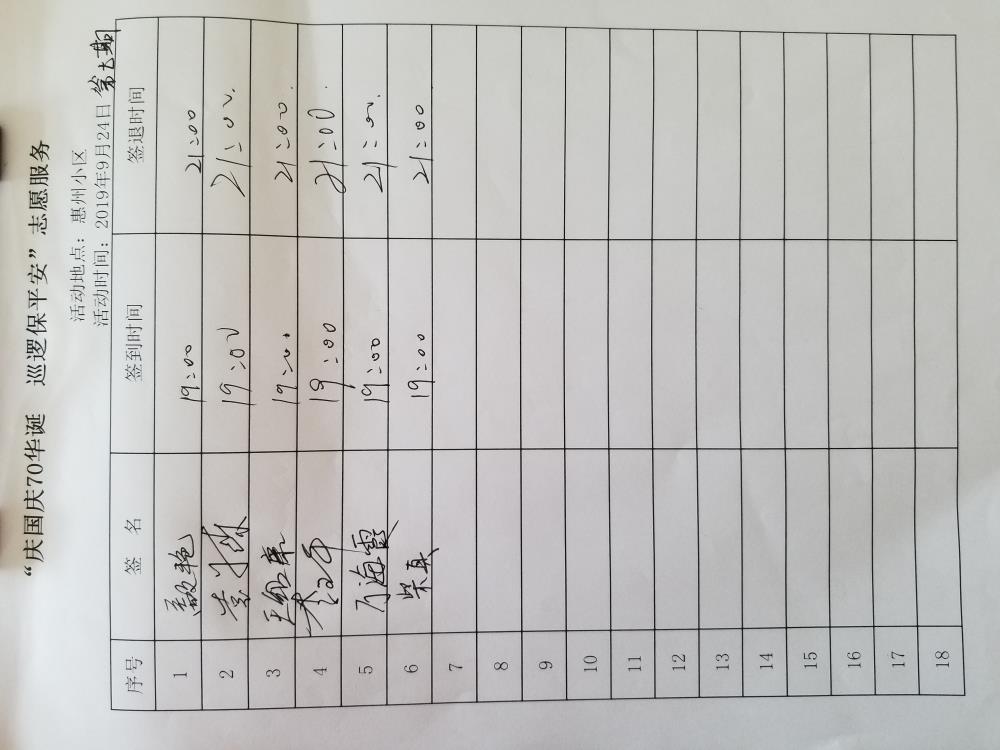 “庆国庆70华诞 巡逻保平安”志愿服务
活动地点：惠州小区
活动时间：2019年9月24日 第七期
序号 签 名 签到时间 签退时间
1 19:00 21:00
2 19:00 21:00.
3 19:00 21:00.
4 19:00 21:00.
5 海霞 19:00 21:00.
6 柴真 19:00 21:00
7
8
9
10
11
12
13
14
15
16
17
18